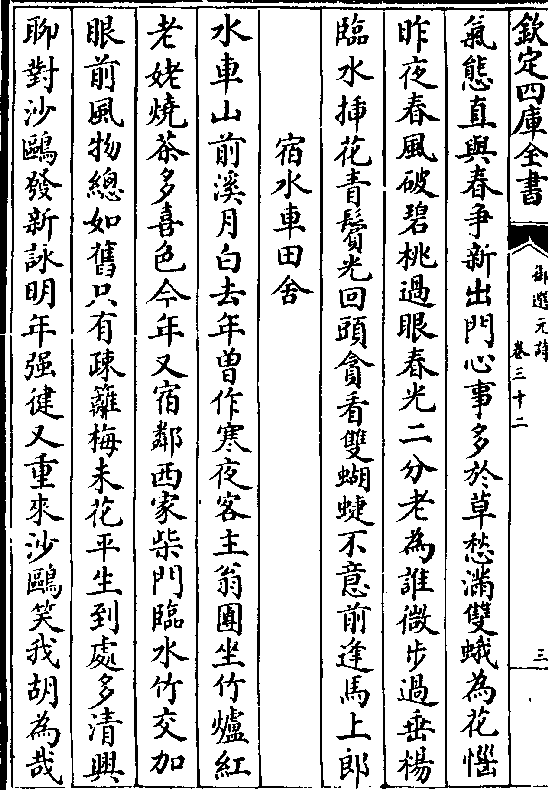 欽定四庫全書
御選元詩
卷三十二
三
氣態直與春争新出門心事多於草愁滿雙蛾為花惱
昨夜春風破碧桃過眼春光二分老為誰微步過垂楊
臨水揷花青鬢光回頭貪看雙蝴蝶不意前逢馬上郎
宿水車田舍
水車山前溪月白去年曽作寒夜客主翁圍坐竹爐紅
老姥燒茶多喜色今年又宿鄰西家柴門臨水竹交加
眼前風物總如舊只有疎籬梅未花平生到處多清興
聊對沙鷗發新詠明年强健又重來沙鷗笑我胡為哉